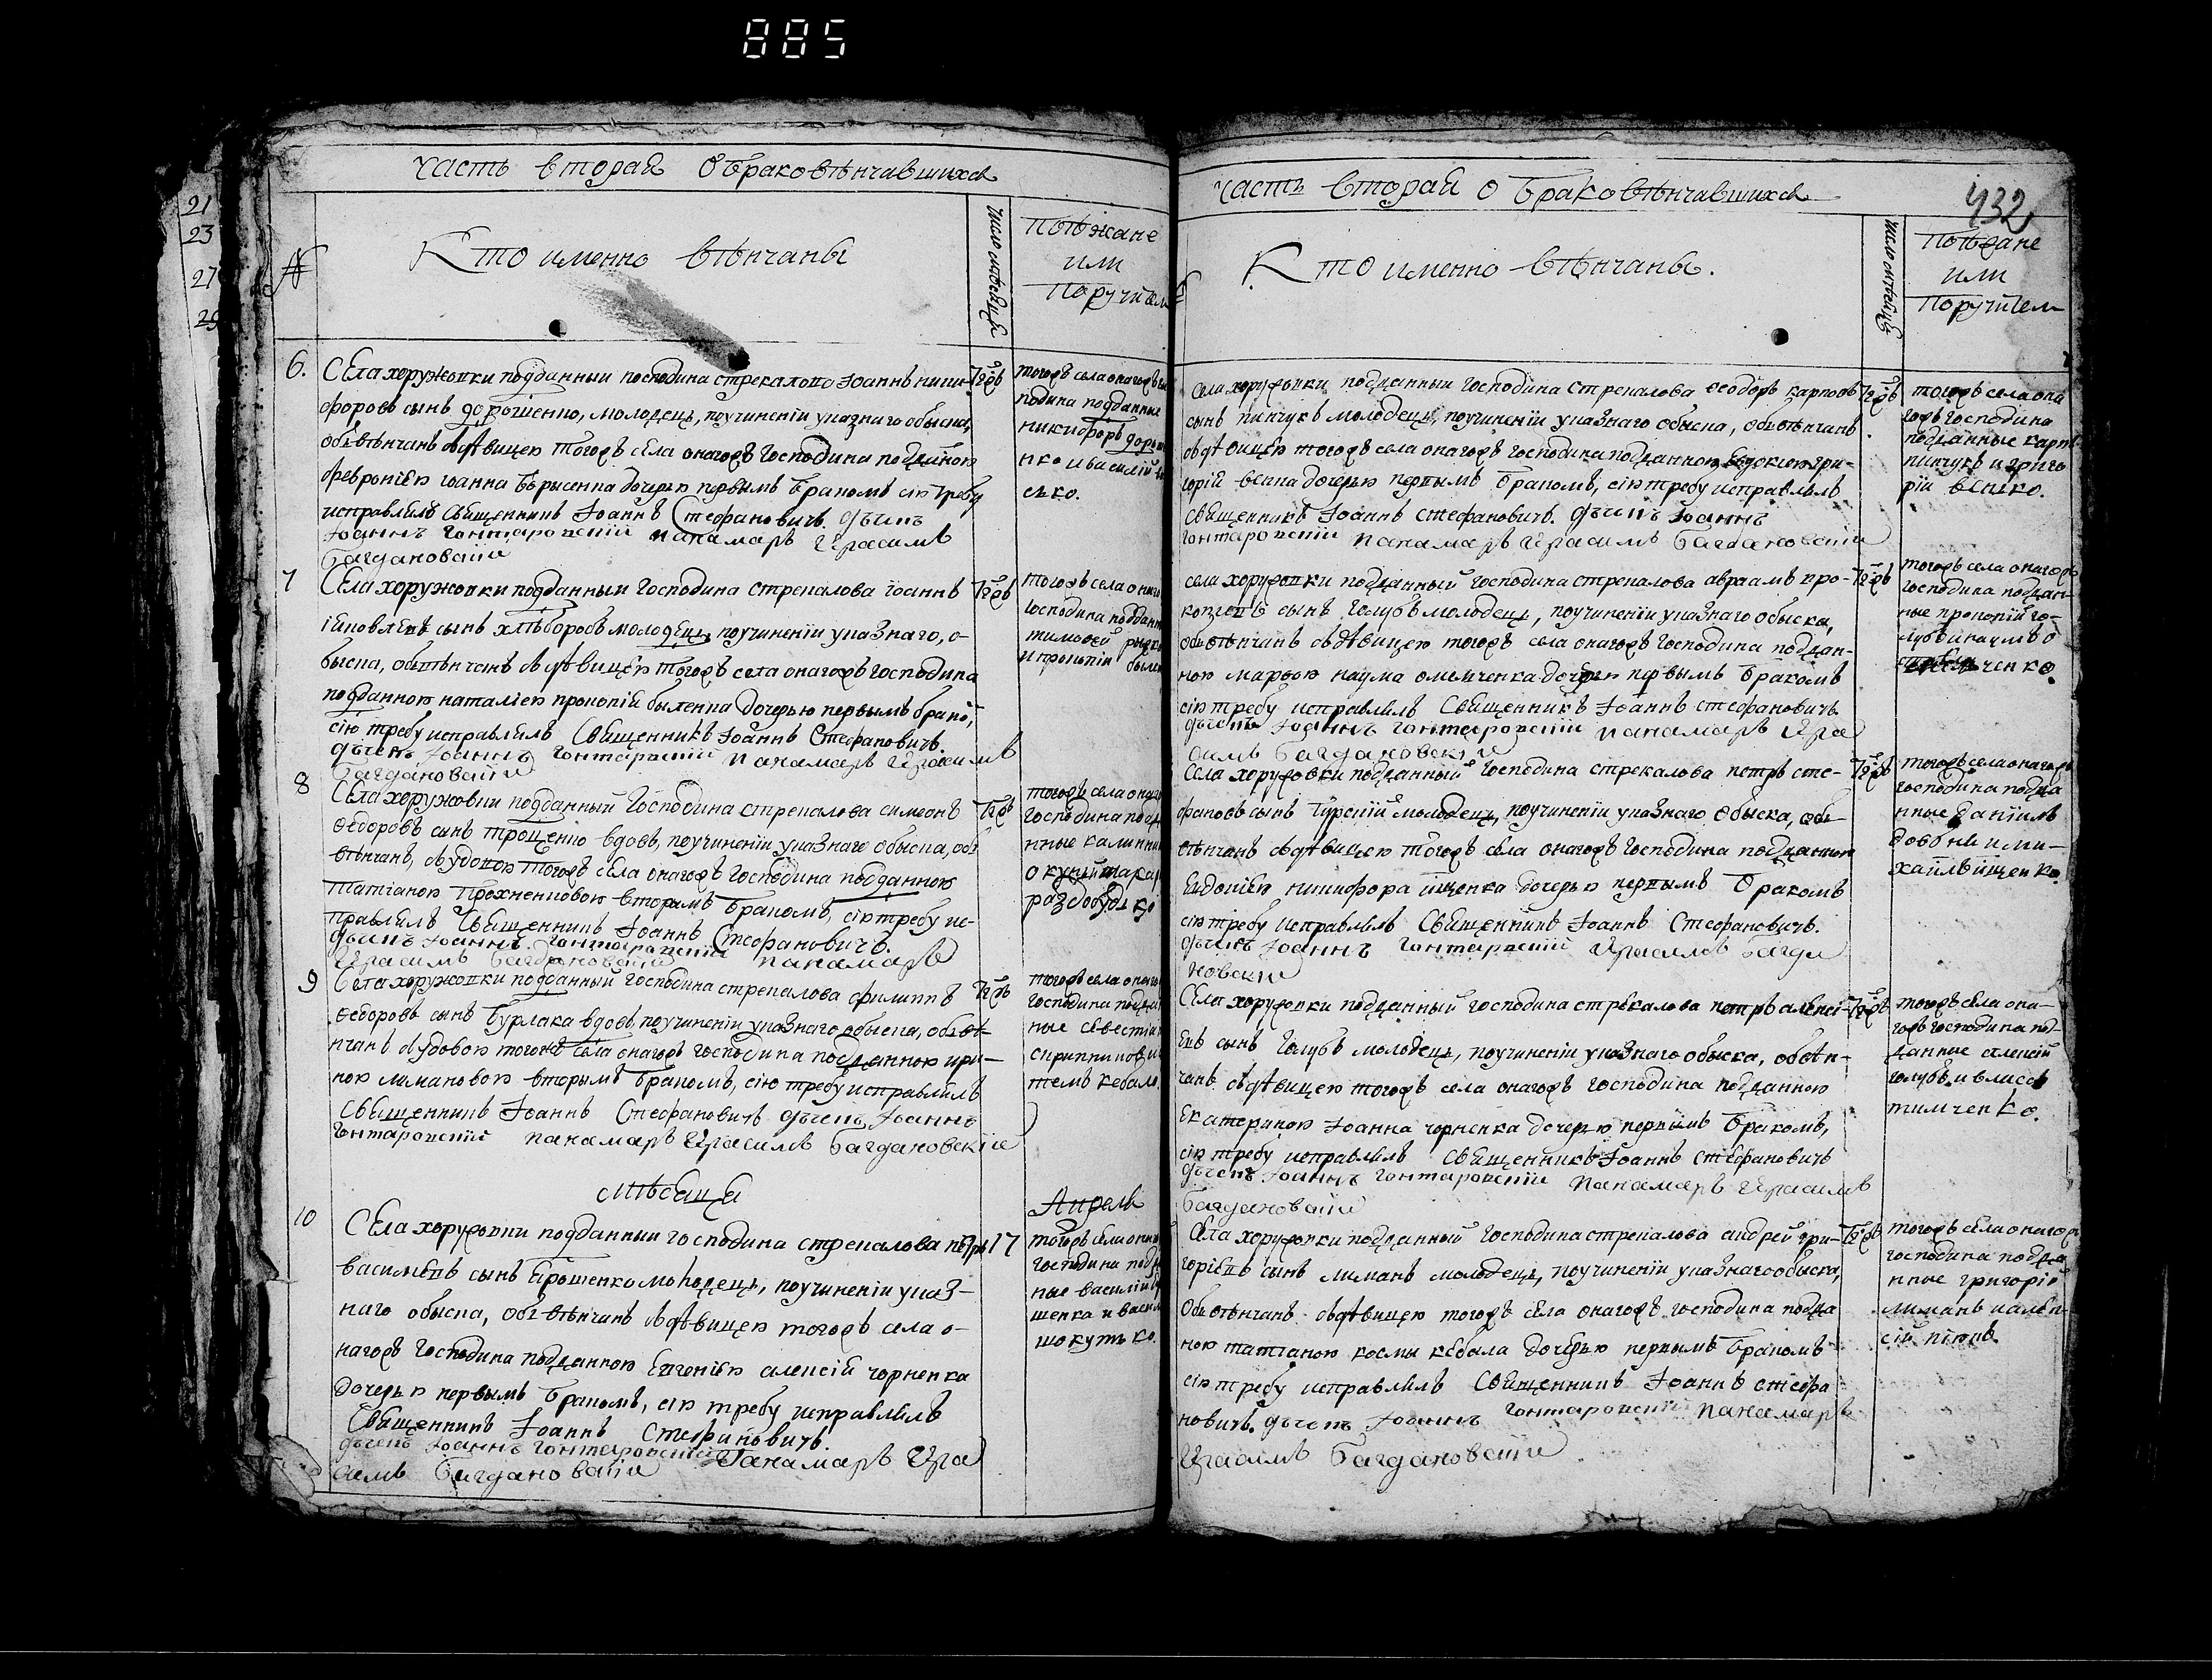 885
Часть вторая о браковѣнчавшихся
№
Кто именно вѣнчаны
Число мѣсяца
Поѣзжане
или
Поручител
21
23
27
29
6.
Села хоружовки подданныи господина стрекалова Іоаннъ ники-
форовъ сынъ дорошенко, молодецъ, поучиненіи указнаго обыска,
обвѣнчанъ здѣвицею тогожъ села оногожъ господина подданою
февроніею іоанна борисенка дочерью первымъ бракомъ сію требу
исправлялъ священникъ Іоаннъ Стефановичъ дячекъ
Іоаннъ Гонтаровскій панамаръ Ирасимъ
Багдановскій
тогожъ села оногожъ го
подина подданные
никифоръ дорош
нко и василій
сько.
7
Села хоружовки подданныи господина стрекалова іоаннъ
сынъ хлѣборобъ молодецъ поучиненіи указнаго, о-
быска, обвѣнчанъ здѣвицею тогожъ села оногожъ господина
подданною наталіею прокопій быленка дочерью первымъ брако,
сію требу исправлялъ Священникъ Іоаннъ Стефановичъ.
дячекъ Іоаннъ Гонтаровскій панамаръ Ирасимъ
Багдановскій
тогожъ села оного
господина поддан
тимофей
и прокопій былен
8
Села хоружовки подданный господина стрекалова симеонъ
ѳедоровъ сынъ трощенко вдовъ, поучиненіи указнаго обыска, об
вѣнчанъ, здовою тогожъ села оногожъ господина подданною
татіаною прохненковою вторымъ бракомъ, сію требу ис-
правлялъ Священникъ Іоаннъ Стефановичъ.
дячекъ Іоаннъ Гонтаровскій
Ирасимъ Багдановскій панамаръ
тогожъ села оного
господина подд
нные калинник
9
Села хоружовки подданный господина стрекалова филиппъ
ѳедоровъ сынъ бурлака вдовъ, поучиненіи указнаго обыска, обвѣ-
нчанъ здовою тогожъ села оногожъ господина подданною ири-
ною лимановою вторымъ бракомъ, сію требу исправлялъ
Священникъ Іоаннъ Стефановичъ дячекъ Іоаннъ
Гонтаровскій панамаръ Ирасимъ Багдановскій
тогожъ села оного
господина подда
ные
мѣсяца
Апрель
10
Села хоружовки подданныи господина стрекалова петръ
17
василіевъ сынъ ярошенко молодецъ, поучиненіи указ-
наго обыска, обвѣнчанъ здѣвицею тогожъ села о-
ногожъ господина подданною Евгеніею алексій чорненка
дочерью первымъ бракомъ, сію требу исправлялъ
Священникъ Іоаннъ Стефановичъ.
дячекъ Іоаннъ Гонтаровскій Панамаръ Ира
симъ Багдановскій
тогожъ села оного
господина подд
ные василій
шенка и васил
шокутько.
Часть вторая о браковѣнчавшихся
432
Кто именно вѣнчаны.
Число мѣсяца
Поѣзжане
или
Поручител
Села хоружовки подданныи господина стрекалова ѳеодоръ карповъ
сынъ пинчукъ молодецъ, поучиненіи указнаго обыска, обвѣнчанъ
здѣвицею тогожъ села оногожъ господина подданною евдокіею гри-
горій величка дочерью первымъ бракомъ, сію требу исправлялъ
священникъ Іоаннъ стефановичъ. дячекъ Іоаннъ
Гонтаровскій панамаръ Ирасимъ Багдановскій
тогожъ села оно
гожъ господина
подданные карпъ
пинчукъ и григо
рій
села хоружовки подданный господина стрекалова авраамъ про-
копіевъ сынъ голубъ молодецъ, поучиненіи указнаго обыска,
обвѣнчанъ здѣвицею тогожъ села оногожъ господина поддан-
ною марѳою наума омелченка дочерью первымъ бракомъ
сію требу исправлялъ Священникъ Іоаннъ стефановичъ.
дячекъ Іоаннъ Гонтаровскій панамаръ Ира
симъ Багдановскій
тогожъ села оногожъ
господина поддан-
ные прокопій го-
лубъ и наумъ о
ченко.
Села хоружовки подданный господина стрекалова петръ сте-
фановъ сынъ турскій молодецъ, поучиненіи указнаго обыска, об-
вѣнчанъ здѣвицею тогожъ села оногожъ господина подданною
Евдокіею никифора ищенка дочерью первымъ бракомъ
сію требу исправлялъ Священникъ Іоаннъ Стефановичъ.
дячекъ Іоаннъ Гонтаровскій Ирасимъ Багда
новскій
тогожъ села оногожъ
господина подда
нные даніилъ
довбня и ми-
хаилъ ищенко.
Села хоружовки подданный господина стрекалова петръ алексі-
евъ сынъ голубъ молодецъ, поучиненіи указнаго обыска, обвѣн-
чанъ здѣвицею тогожъ села оногожъ господина подданною
Екатериною Іоанна чорненка дочерью первымъ бракомъ,
сію требу исправлялъ священникъ Іоаннъ стефановичъ
дячекъ Іоаннъ Гонтаровскій панамаръ Ирасимъ
Багдановскій
тогожъ села оно-
гожъ господина под-
данные алексій
голубъ и власъ
тимченко.
Села хоружовки подданный господина стрекалова андрей гри-
горіевъ сынъ лиманъ молодецъ, поучиненіи указнаго обыска,
Обвѣнчанъ здѣвицею тогожъ села оногожъ господина подда
ною татіаною космы кебала дочерью первымъ бракомъ
сію требу исправлялъ Священникъ Іоаннъ стефа-
новичъ. дячекъ Іоаннъ Гонтаровскій панамаръ
Ирасимъ Багдановскій
тогожъ села оногожъ
господина подда
нные григорій
лиманъ и алек-
сій